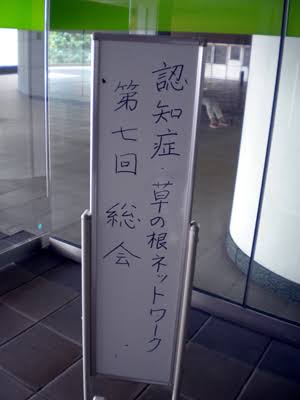 認知症・草の根ネットワーク
第七回 総会